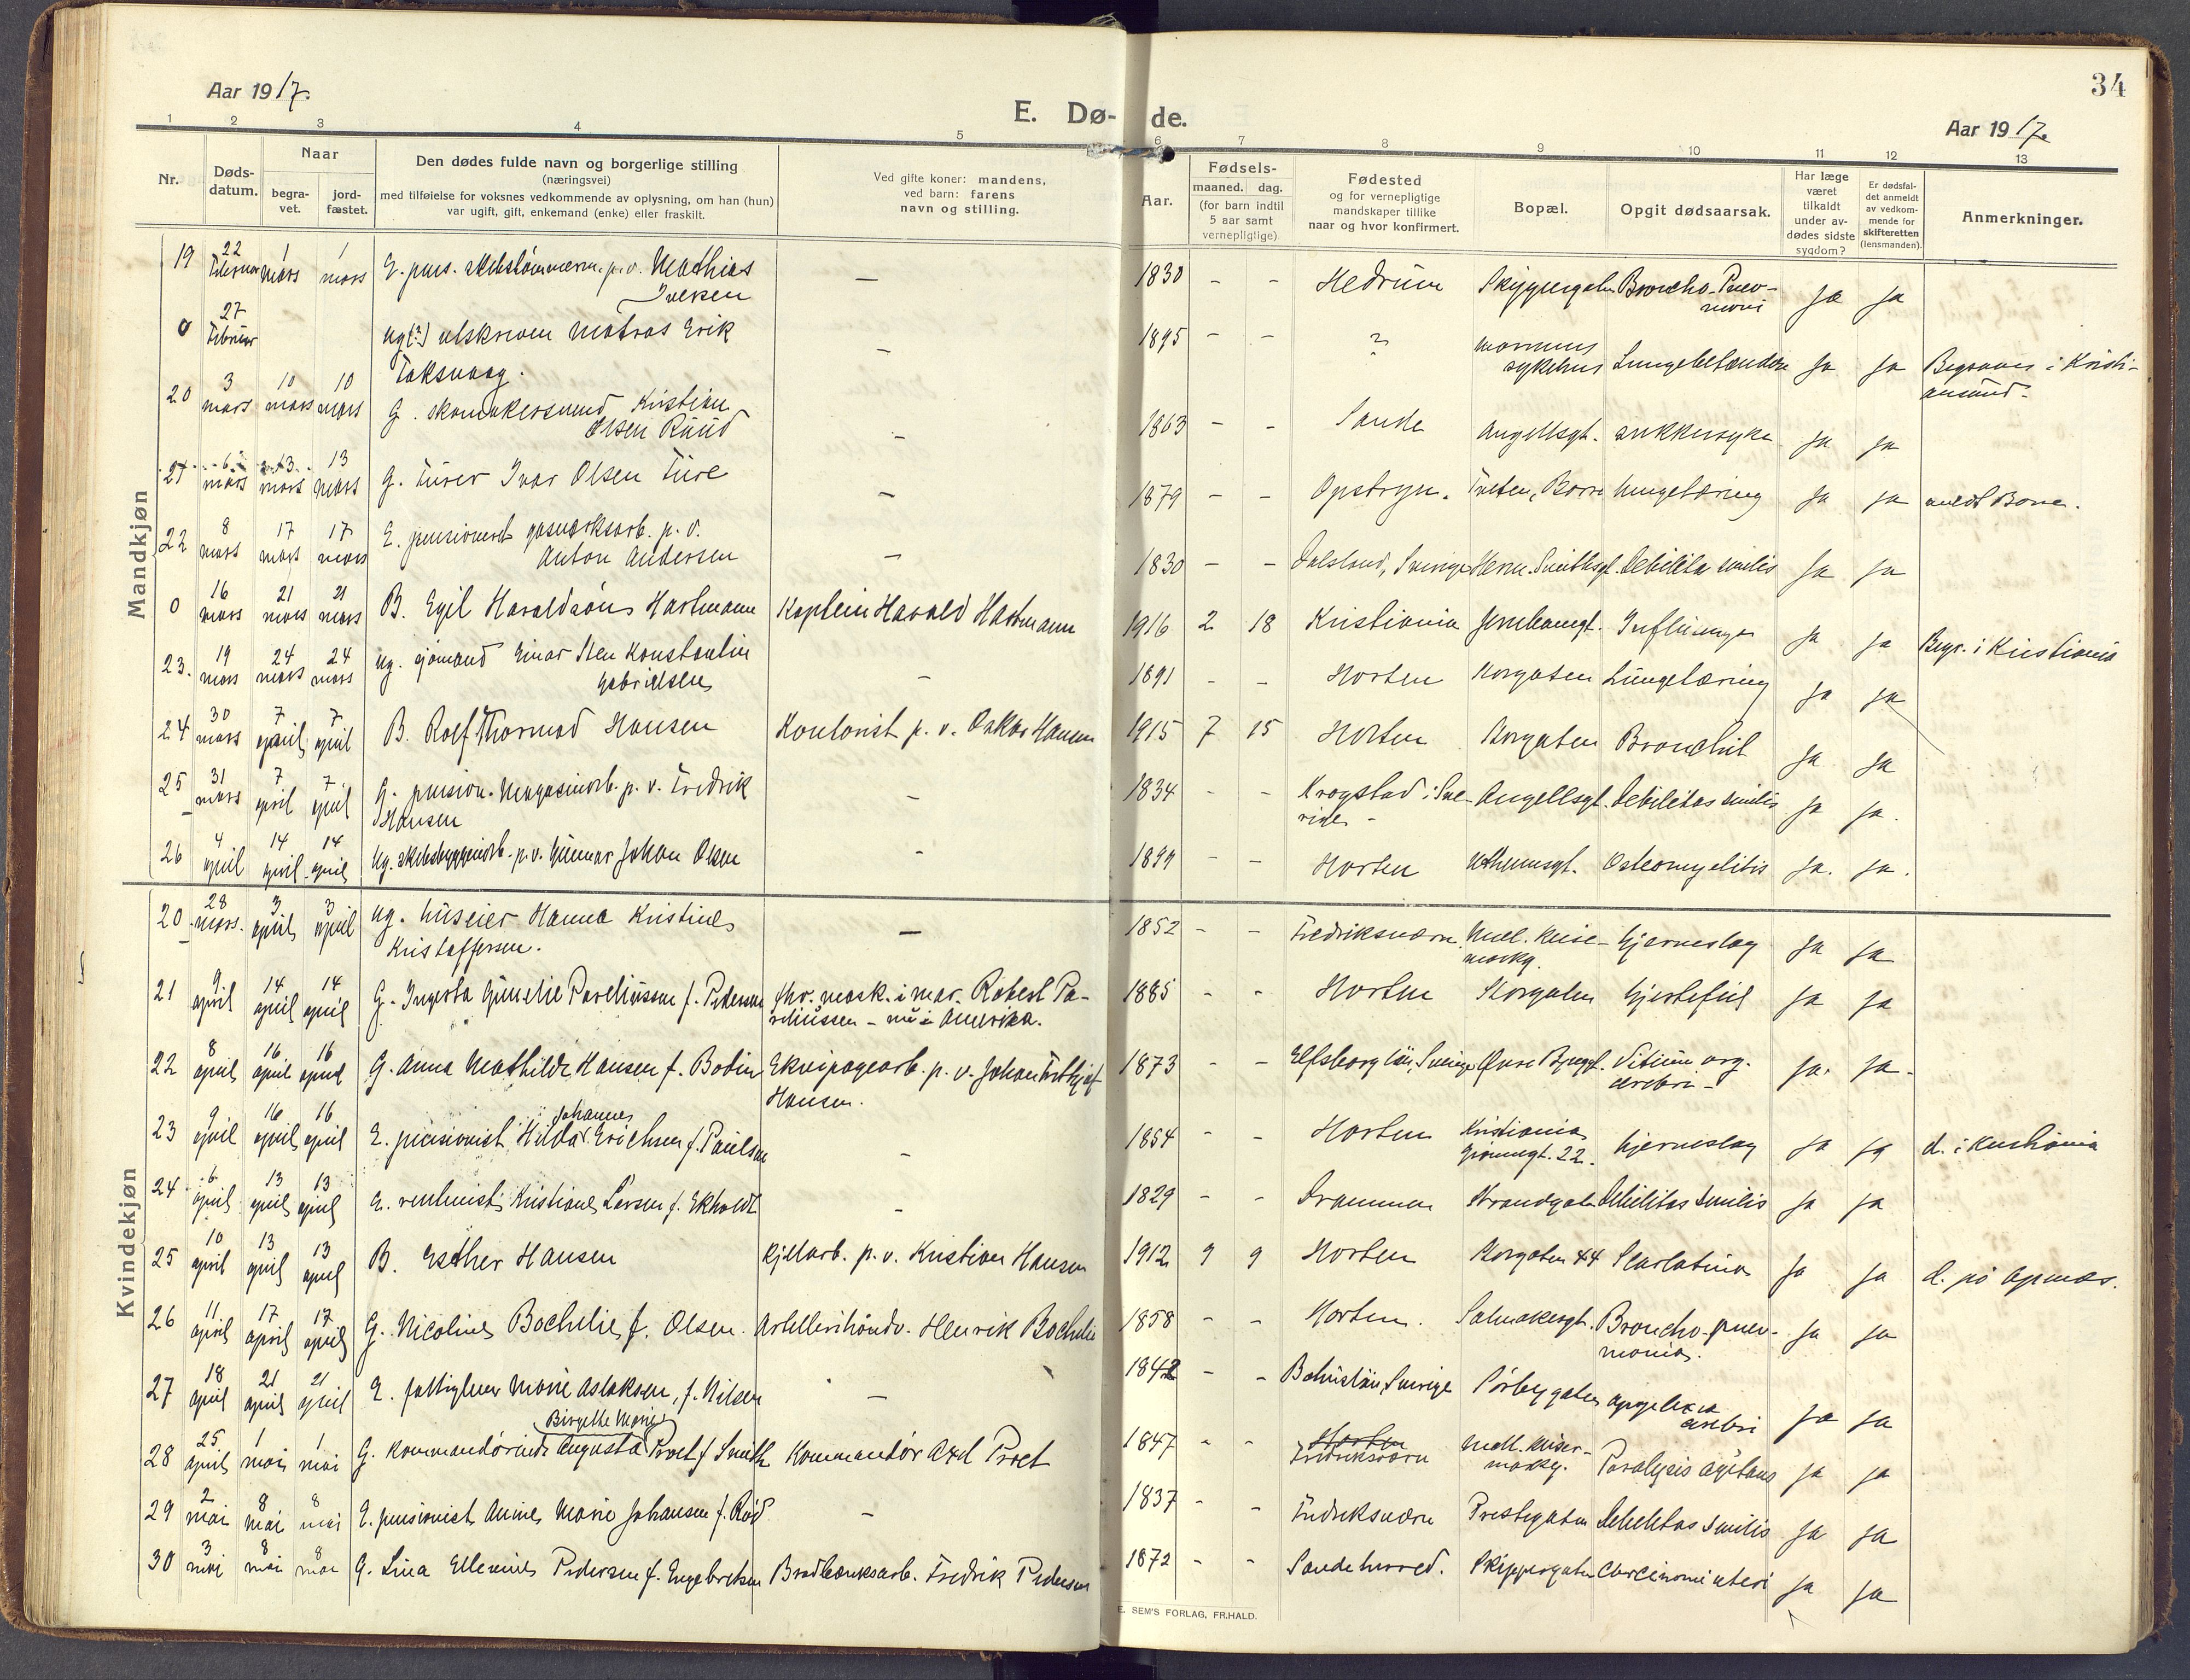 Aar 1917.
E. Dø-de.
34
Aar 1917.
1 2 3 4 5 6 7 8 9 10 11 12 13
Nr.
Døds-
datum.
Naar
begra-
vet.
jord-
fæstet.
Den dødes fulde navn og borgerlige stilling
(næringsvei)
med tilføielse for voksnes vedkommende av oplysning, om han (hun)
var ugift, gift, enkemand (enke) eller fraskilt.
Ved gifte koner: mandens,
ved barn: farens
navn og stilling.
Aar.
Fødsels-
maaned. dag.
(for barn indtil
5 aar samt
vernepligtige)
Fødested
og for vernepligtige
mandskaper tillike
naar og hvor konfirmert.
Bopæl.
Opgit dødsaarsak.
Har læge
været
tilkaldt
under av-
dødes sidste
sygdom?
Er dødsfal-
det anmeldt
av vedkom-
mende for
skifteretten
(lensmanden).
Anmerkninger.
Mandkjøn
19 22 Februar 1 mars 1 mars E. pens. skibstømmerm. p. v. Mathias
Iversen — 1830 - - Hedrum Skippergaten Broncho-Pneu-
moni ja ja
0 27 Februar ug (?) utskreven matros Erik
Taksvaag. — 1895 - - ? marinens
sykehus Lungebetændelse ja ja Begraves i Kristi-
ansund.
20 3 mars 10 mars 10 mars G. skomakersvend Kristian
Olsen Ruud - 1863 - - Sande Angellsgt. sukkersyke ja ja
21 6 mars 13 mars 13 mars G. Fürer Ivar Olsen Füre — 1879 - - Opstryn. Tveten, Borre Lungetæring ja ja meldt Borre.
22 8 mars 17 mars 17 mars E. pensioneret gasverksarb. p. v.
Anton Andersen — 1830 - - Dalsland, Sverige Herm. Smithsgt. Debilitas senilis ja ja
0 16 mars 21 mars 21 mars B. Egil Haraldsøns Hartmann Kaptein Harald Hartmann 1916 2 18 Kristiania Jernbanegt. Influenza ja ja Begr. i Kristiania
23. 19 mars 24 mars 24 mars ug. sjømand Einar Sten Konstantin
Gabrielsen - 1891 - - Horten Storgaten Lungetæring ja ja
24 30 mars 7 april 7 april B. Rolf Thormod Hansen Kontorist p. v. Oskar Hansen 1915 7 15 Horten Storgaten Bronchit ja ja
25 31 mars 7 april 7 april G. pension. Magasinarb. p. v. Fredrik
Hansen - 1834 - - Krogstad i Sve-
rige - Angellsgt. Debilitas senilis ja ja.
26 4 april 14 april 14 april Ug. skibsbyggeriarb. p. v. Gunnar Johan Olsen - 1899 - - Horten Osteomyelitis ja. ja.
Kvindekjøn
20 28 mars. 3 april 3 april ug. huseier Hanna Kristine
Kristoffersen. — 1852 - - Fredriksværn. Mell. Keise-
markg. Hjerneslag ja ja
21 9. april 14 april 14 april G. Ingerta Gunelie Paveliussen f. Pedersen fhv. mask. i mar. Robert Pa-
veliussen - nu i Amerika. 1885 - - Horten Storgaten Hjertefeil ja ja
22 8 april 16 april 16 april G. Anna Mathilde Hansen f. Bodin Ekvipagearb. p. v. Johan Frithjof
Hansen. 1873 - - Elfsborg län, Sverige Øvre Byggt. Vitium org.
cerebri - ja. ja.
23 9 april 16 april 16 april E. pensionist Hilda Johanne Erichsen f. Paulsen - 1854 - - Horten Kristiania
Grønnegt. 22. Hjerneslag ja ja d. i Kristiania
24 6 april 13 april 13 april E. rentenist Kristiane Larsen f. Ekholdt - 1829 - - Drammen Strandgaten Debilitas senilis ja ja
25 10 april 13 april 13 april B. Esther Hansen Kjelarb. p. v. Kristian Hansen 1912 9 9 Horten Storgaten 44 Scarlatina ja ja d. på Apenæs.
26 11 april 17 april 17. april G. Nicoline Bachelie f. Olsen. Artillerihåndv. Henrik Bachelie 1858 - - Horten. Salmakergt. Broncho-pneu-
monia. ja ja
27 18 april 21 april 21 april E. fattiglem Marie Aslaksen, f. Nilsen — 1842 - - Bahuslän, Sverige Sørbygaten apoplexia
cerebri ja ja
28 25. april 1 mai 1 mai G. Kommandørinde Augusta Birgethe Marie Proet f. Smith Kommandør Axel Proet 1847 - - Horten
Fredriksværn Mell. Keiser-
markg. Paralysis agitans ja ja
29 2 mai 8 mai 8 mai E. pensionist Anne Marie Johansen f. Rød - 1837 - - Fredriksværn Prestegaten Debilitas senilis ja ja
30 3 mai 8 mai 8 mai G. Lina Ellevine Pedersen f. Engebretsen Brødbænksarb. Fredrik Pedersen 1872 - - Sande herred. Skippergaten Carcinoma uteri ja ja
E. SEM'S FORLAG, FR.HALD.